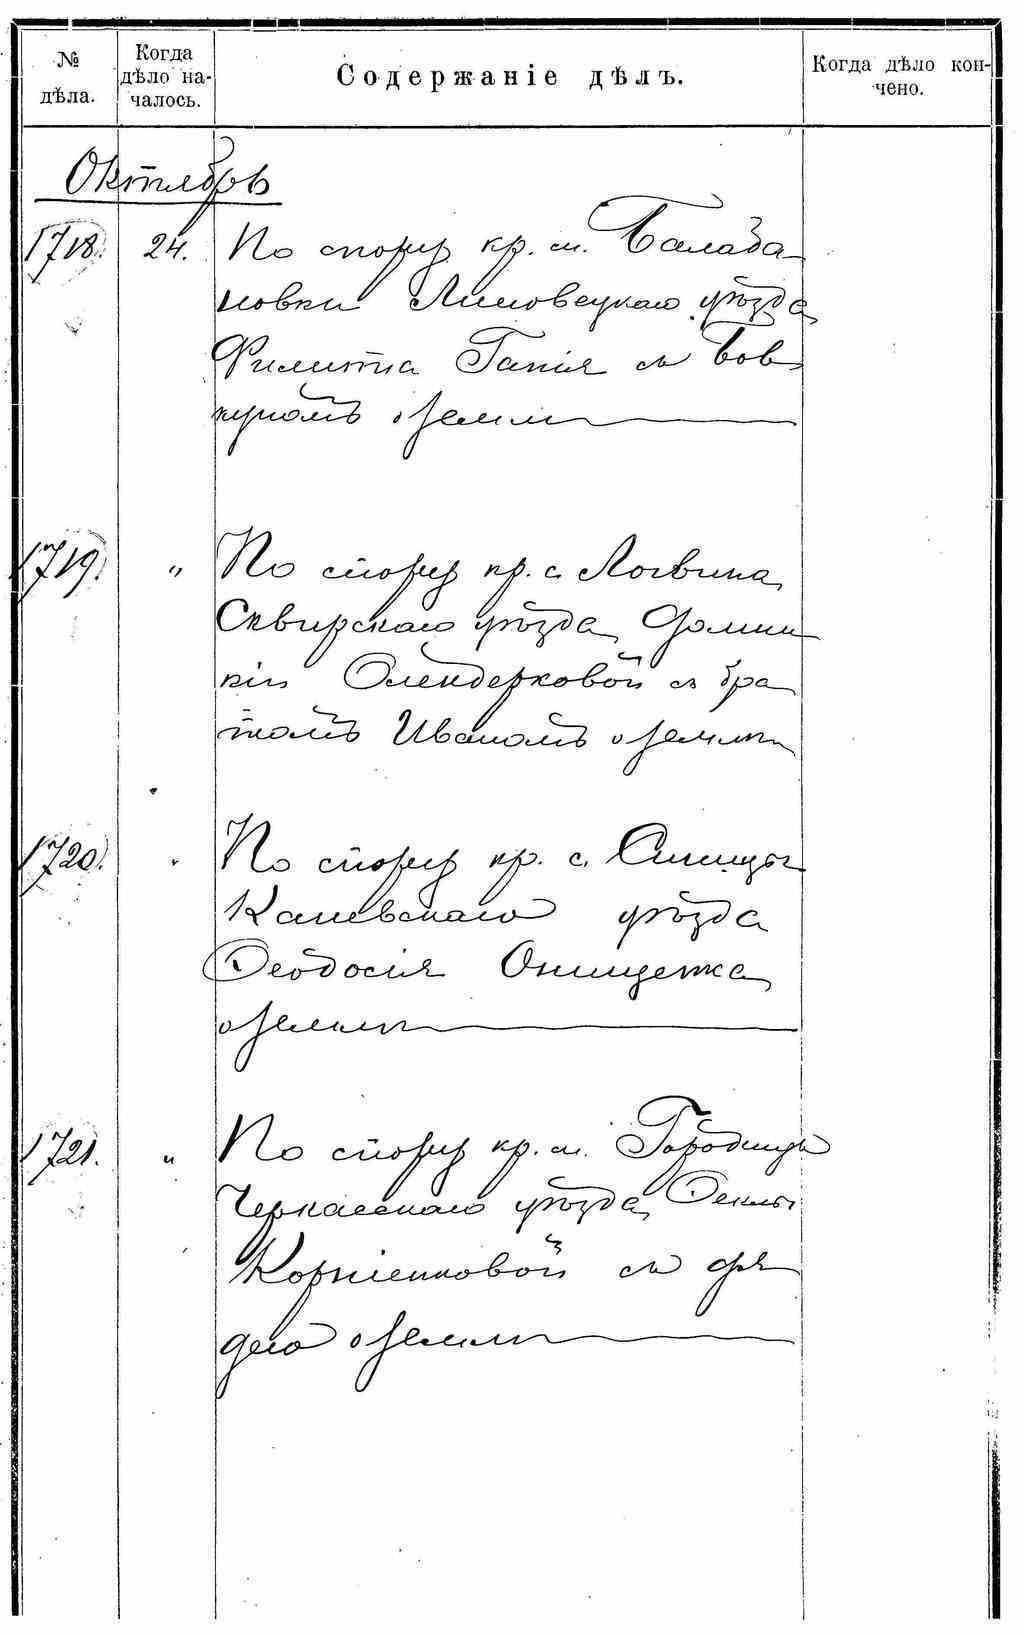 № дѣла.
Когда дѣло на-
чалось.
Содержаніе дѣлъ.
Когда дѣло кон-
чено.
Октябрь
1718. 24. По спору кр. м. Балаба-
новки Липовецкаго уѣзда
Филиппа Гапія съ Бов-
куномъ о землѣ
1719. " По спору кр. с. Логвина
Сквирскаго уѣзда Доми-
кіи Олендерковой съ бра
томъ Иваномъ о землѣ
1720. " По спору кр. с. Синицы
Каневскаго уѣзда
Ѳеодосія Онищенка
о землѣ
1721. " По спору кр. м. Городища
Черкасскаго уѣзда Ѳеклы
Корніенковой съ дя
дею о землѣ